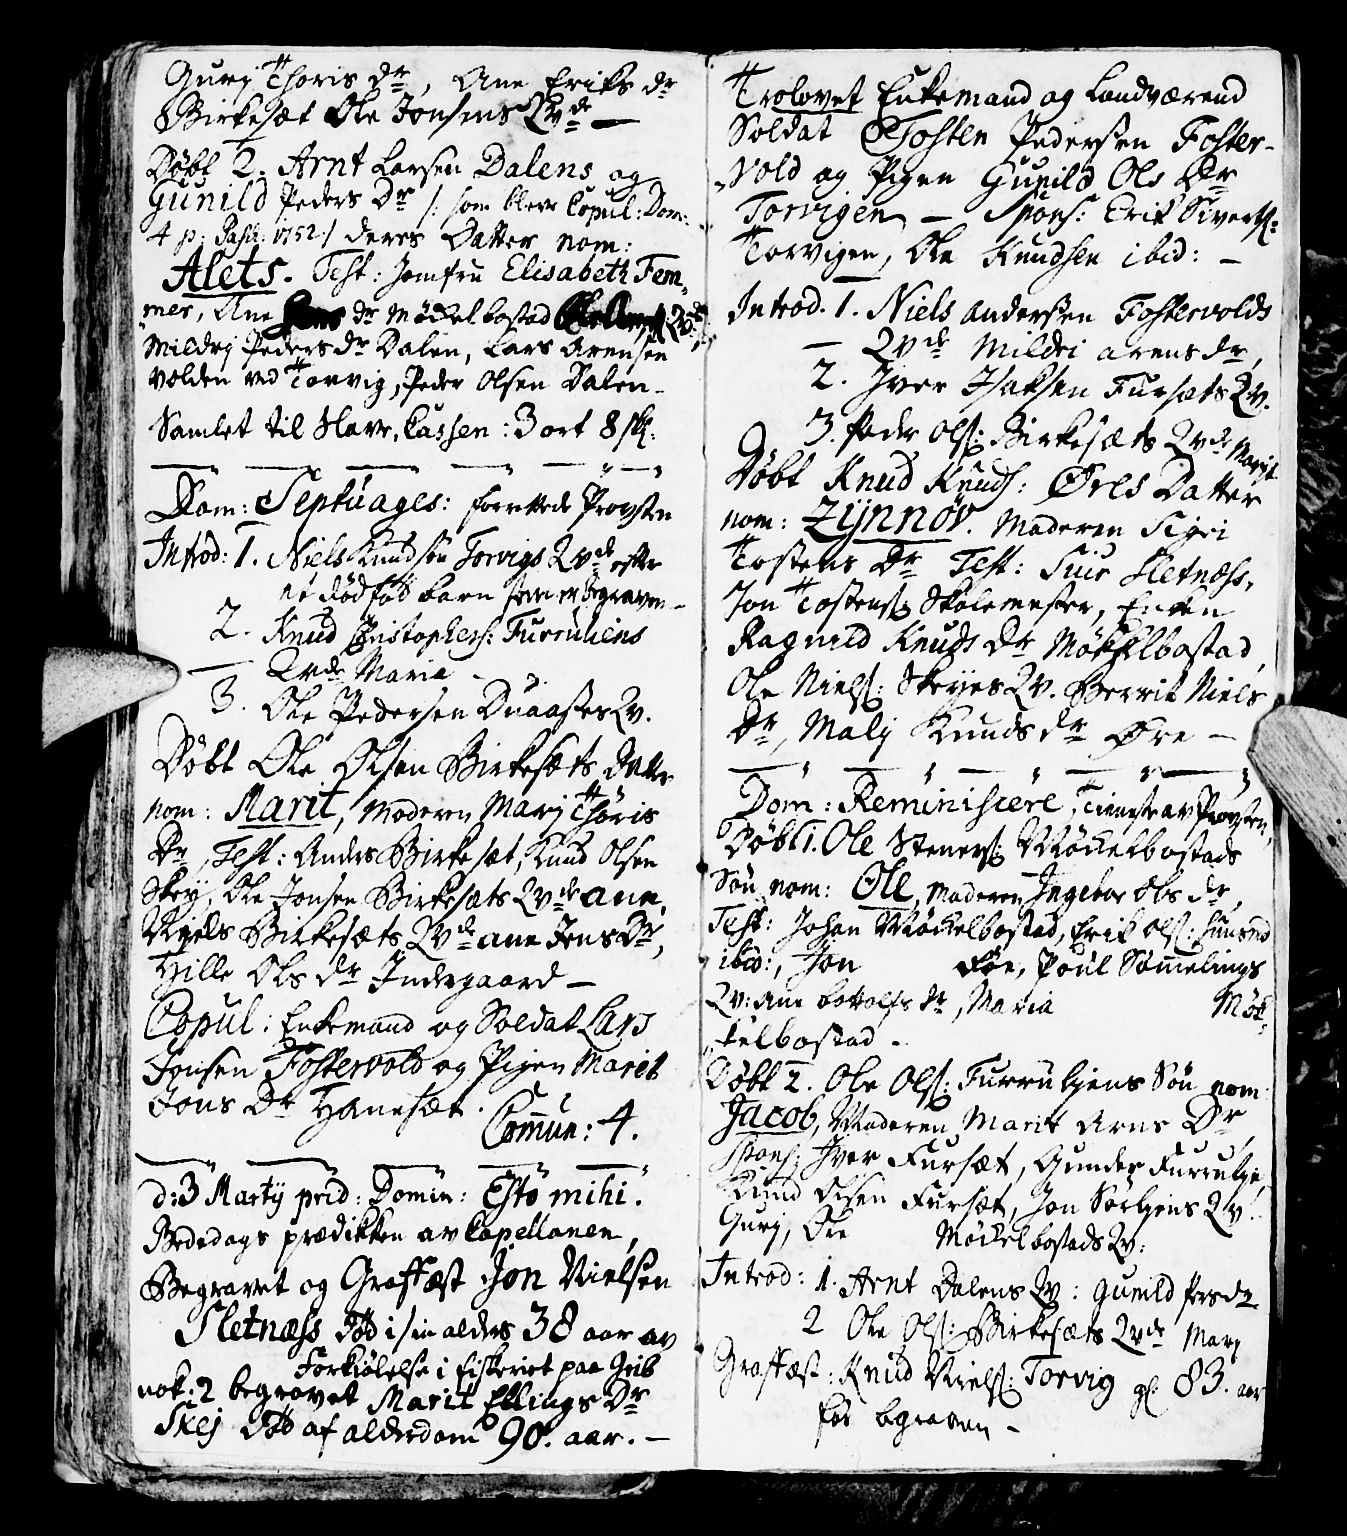 Gurj Thoris dr, Ane Eriks dr
Birkesæt Ole Jonsens Qvde —
Døbt 2. Arnt Larsen Dalens og
Gunild Peders Dr /: som blev Copul: Dom:
4 p: Pasch: 1752 :/ deres Datter nom:
Alets. Test: Jomfru Elisabeth Fem-
mer, Ane dr Möckelbostad Qvde
Mildrj Peders dr Dalen, Lars Arensen
Volden ved Torvig, Peder Olsen Dalen —
Samlet til Slave-Cassen: 3 ort 8 sk:
Dom: Septuages: forrettede Provsten
Introd: 1. Niels Knudsøn Torvigs Qvde efter
et dødfød barn som er begraven —
2. Knud Christophers: Furruliens
Qvde Maria —
3. Ole Pedersen Duaasters Qv.
Døbt Ole Olsen Birkesæts Datter
nom: Marit, Moderen Marj Thoris
Dr, Test: Anders Birkesæt, Knud Olsen
Skej, Ole Jonsen Birkesæts Qvde ane,
Niels Birkesæts Qvde ane Jens Dr,
Hille Ols dr Indergaard —
Copul: Enkemand og Soldat Lars
Jonsen Fostervold og Pigen Marit
Jons Dr Hanesæt.
Comun: 4.
d: 3 Martij prid: Domin: Esto mihi.
Bededags prædikken av Capellanen,
Begravet og Graffæst Jon Nielsen
Sletnæss Død i sin alders 38 aar av
Forkiølelse i fiskeriet paa Grib
nok: 2 begravet Marit Ellings Dr
Skej Død af alderdom 90. aar. —
Trolovet Enkemand og Landværend
Soldat Tosten Pedersen Foster-
vold og Pigen Gunild Ols Dr
Torvigen — Spons: Erik Siverts:
Torvigen, Ole Knudsen ibid: —
Introd. 1. Niels andersen Fostervolds
— Qvde Mildri arens dr,
2. Iver Isaksen Fursæts Qv.
3. Peder Ols: Birkesæts Qvde Marit
Døbt Knud Knuds: Øres Datter
nom: Zijnnøv. Moderen Sigri
Tostens Dr Test: Siur Sletnæss,
Jon Tostens: Skolemester, Enken
Ragnild Knuds Dr Möckelbostad,
Ole Niels: Skejes Qv. Berrit Niels
Dr, Malj Knuds dr Øre —
Dom: Reminiscere, Tieneste av Provsten,
Døbt 1. Ole Steners: Möckelbostads
Søn nom: Ole, Moderen Ingebor Ols dr,
Test: Johan Möckelbostad, Erik Ols: Hunsnd
ibid:, Jon Føe, Poul Sømelings
Qv: Ane bottolfs dr, Maria Möc-
kelbostad —
Døbt 2. Ole Ols: Furruljens Søn nom:
Jacob, Moderen Marit Arns Dr,
Spons: Iver Fursæt, Gunder Furrulje,
Knud Olsen Fursæt, Jon Sørljens Qv:
Gurj, Ole Möckelbostads Qv:
Introd: 1. Arnt Dalens Qv: Gunild Pers dr
2 Ole Ols: Birkesæts Qvde Marj
Graffæst: Knud Niels: Torvig gl: 83. aar
før begraven —